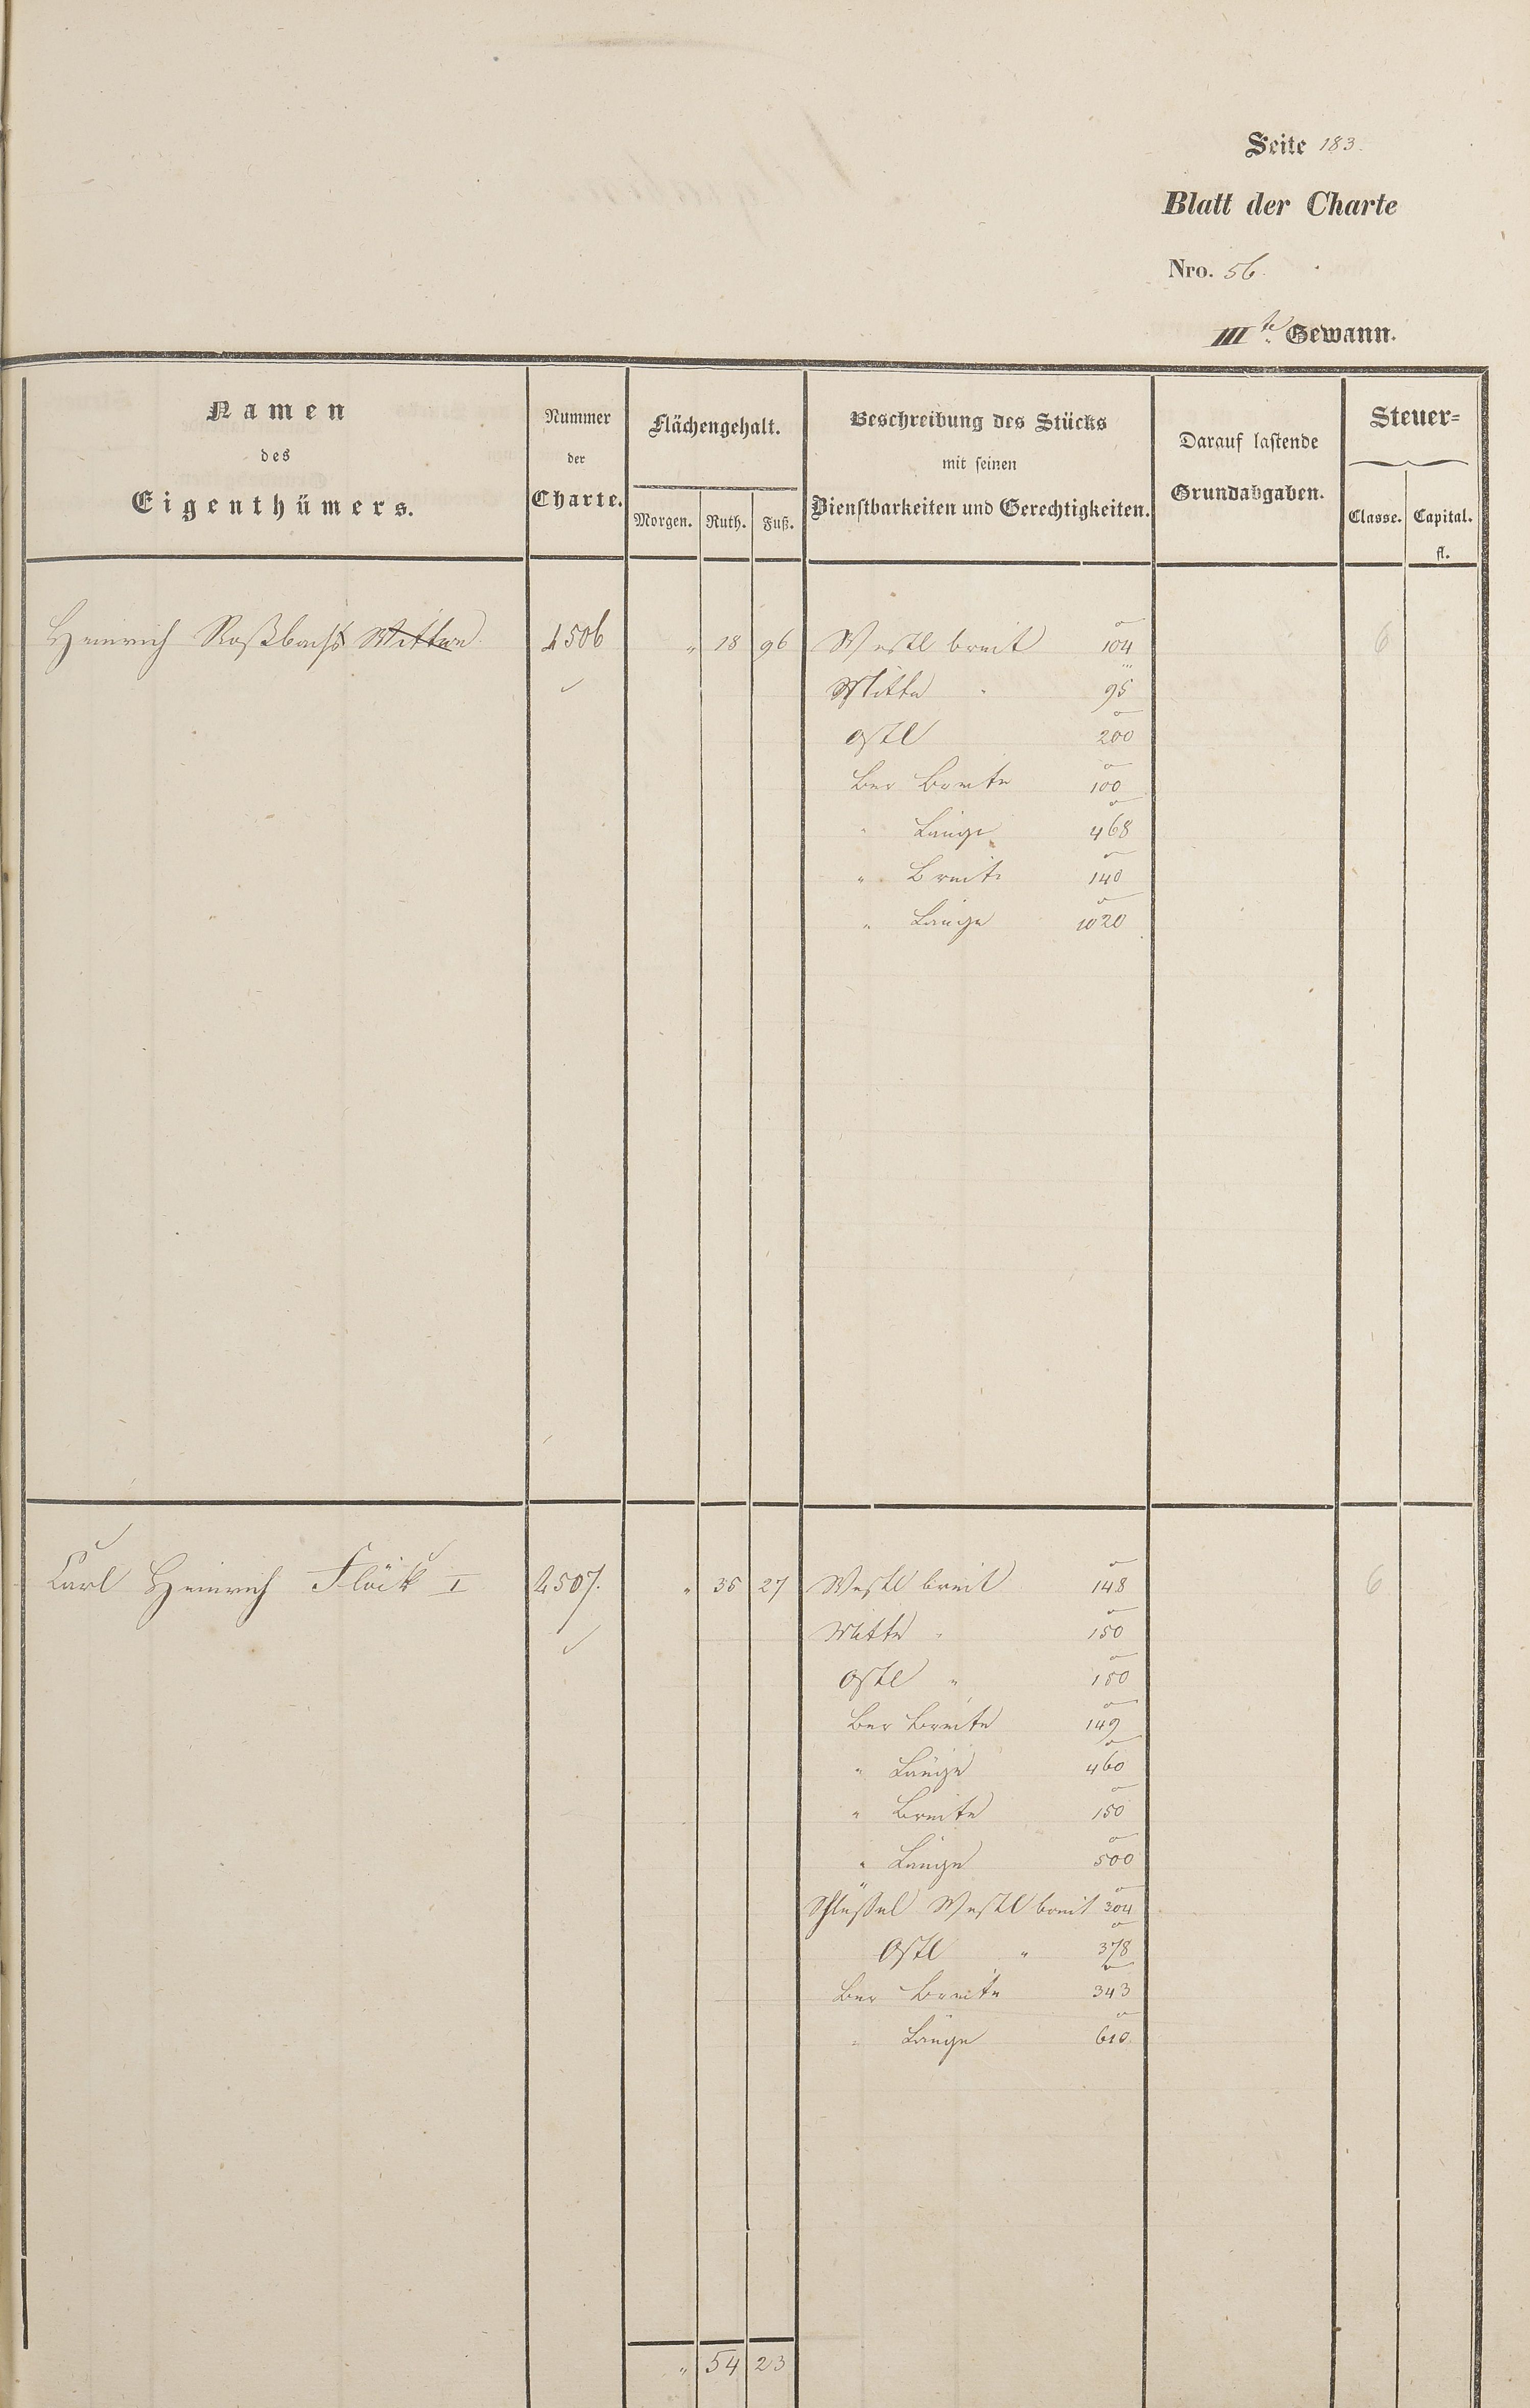 Seite 183.
Blatt der Charte
Nro. 56.
III te Gewann.
Namen
des
Eigenthümers.
Nummer
der
Charte.
Flächengehalt.
Morgen. Ruth. Fuß.
Beschreibung des Stücks
mit seinen
Dienstbarkeiten und Gerechtigkeiten.
Darauf lastende
Grundabgaben.
Steuer=
Classe. Capital.
fl.
Heinrich Roßbachs Wittwe 4506 " 18 96 Westl breit 104 6
Mitte " 95
Ostl 200
Ber Breite 100
" Länge 468
" Breite 140
" Länge 1020
Carl Heinrich Flöck I 4507. " 35 27 Westl breit 148 6
Mitte " 150
Ostl " 150
Ber Breite 149
" Länge 460
" Breite 150
" Länge 500
Schlüssel Westl breit 304
Ostl " 378
Ber Breite 343
" Länge 610
" 54 23